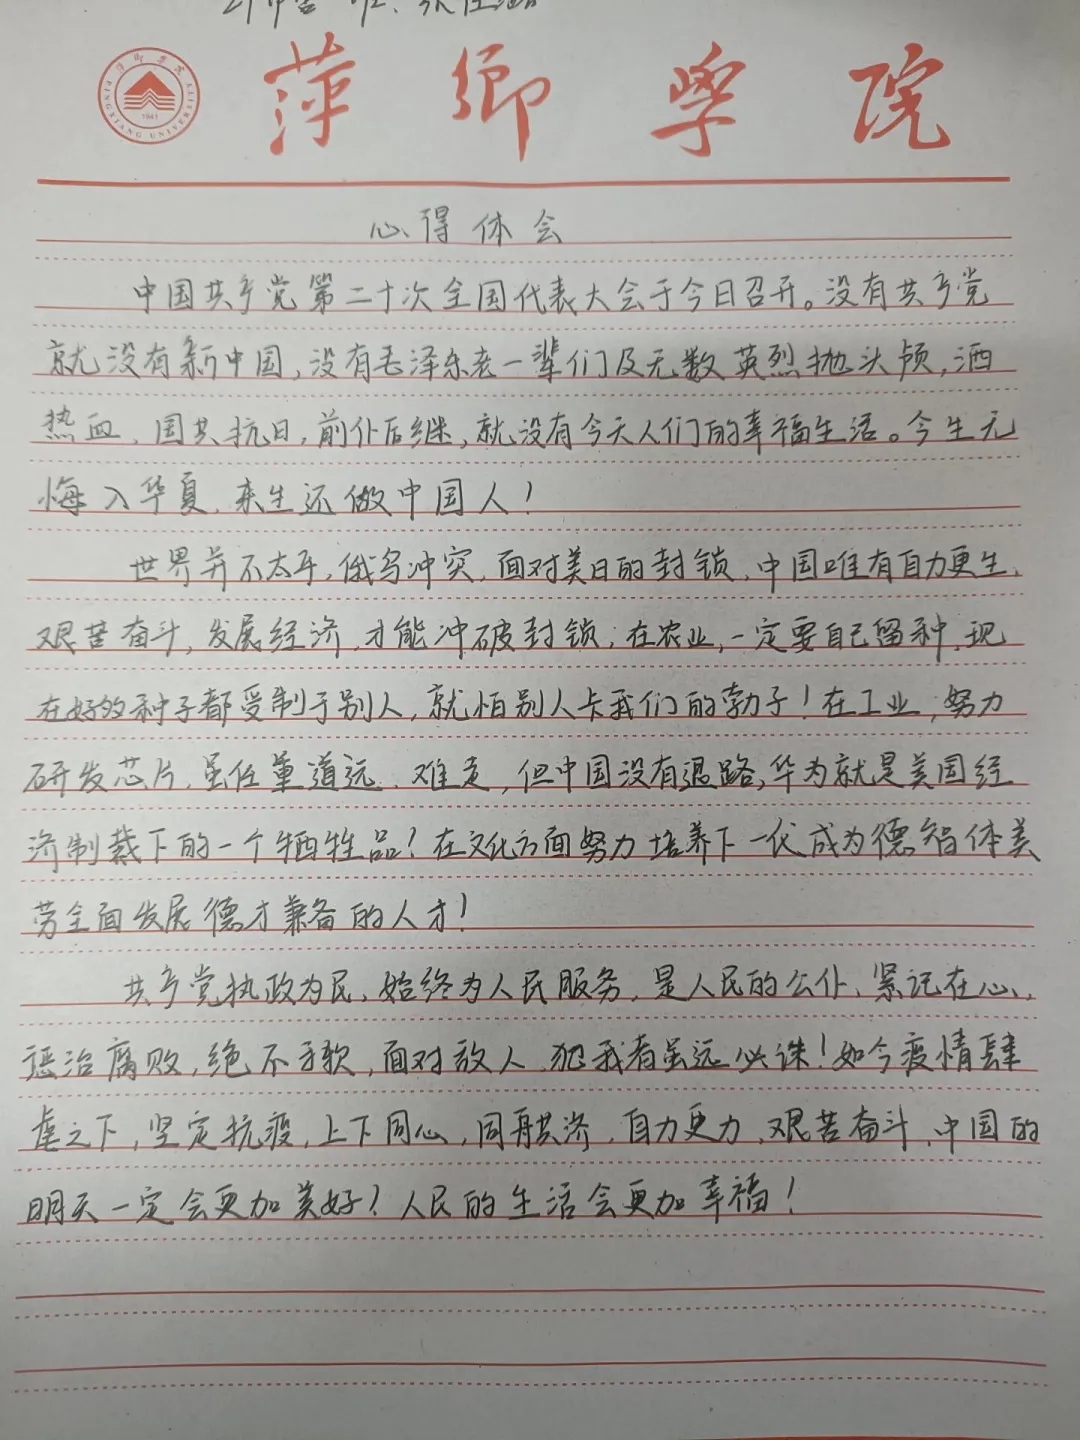 萍乡学院
PINGXIANG UNIVERSITY
1941
心得体会
中国共产党第二十次全国代表大会于今日召开。没有共产党
就没有新中国,没有毛泽东老一辈们及无数英烈抛头颅,洒
热血,国共抗日,前仆后继,就没有今天人们的幸福生活。今生无
悔入华夏,来生还做中国人!
世界并不太平,俄乌冲突,面对美日的封锁,中国唯有自力更生,
艰苦奋斗,发展经济,才能冲破封锁;在农业,一定要自己留种,现
在好的种子都受制于别人,就怕别人卡我们的勃子!在工业,努力
研发芯片,虽任重道远,难走,但中国没有退路,华为就是美国经
济制裁下的一个牺牲品!在文化方面努力培养下一代成为德智体美
劳全面发展德才兼备的人才!
共产党执政为民,始终为人民服务,是人民的公仆,紧记在心,
惩治腐败,绝不手软,面对敌人,犯我者虽远必诛!如今疫情肆
虐之下,坚定抗疫,上下同心,同舟共济,自力更力,艰苦奋斗,中国的
明天一定会更加美好!人民的生活会更加幸福!